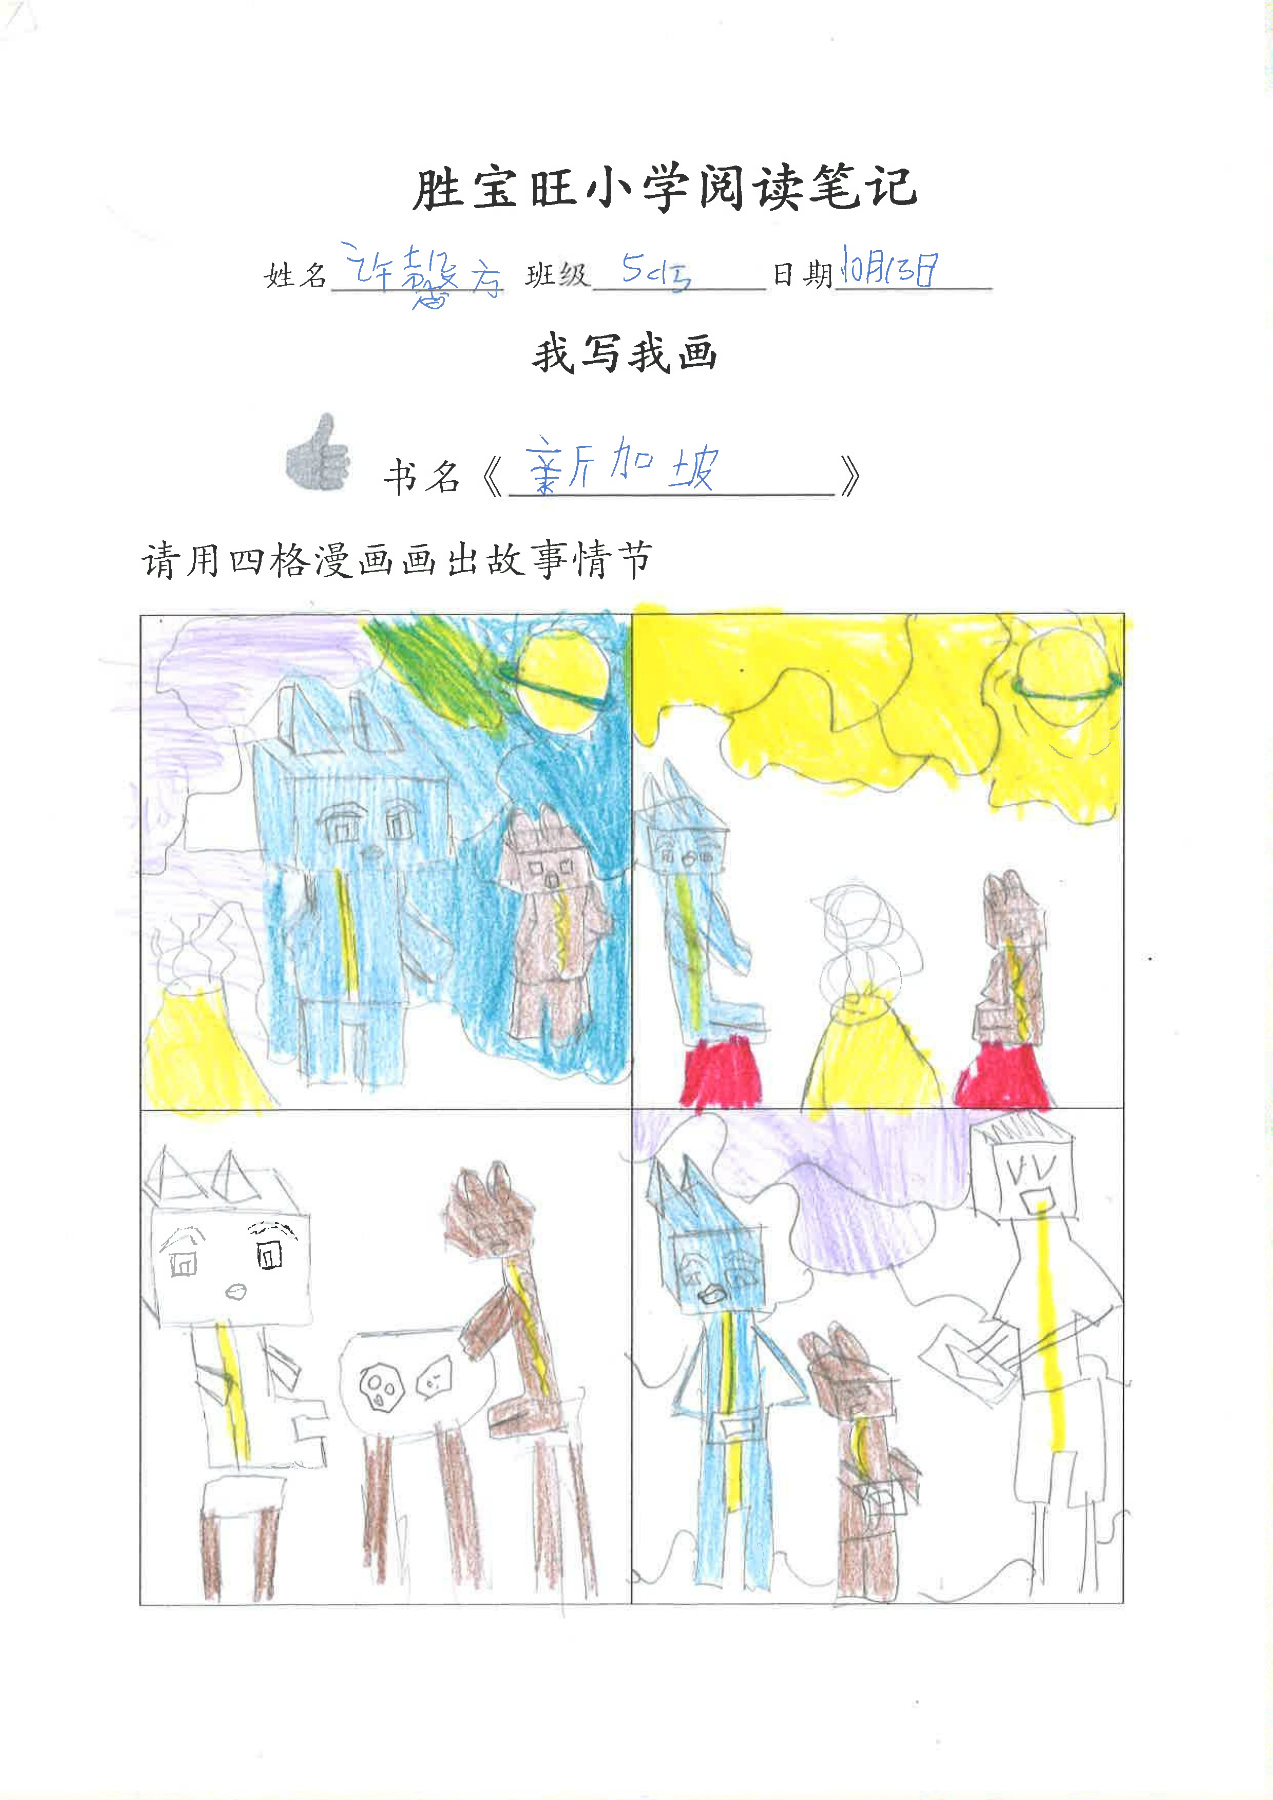 胜宝旺小学阅读笔记
姓名 许馨方 班级 5 日期 10月13日
我写我画
书名《 新加坡 》
请用四格漫画画出故事情节